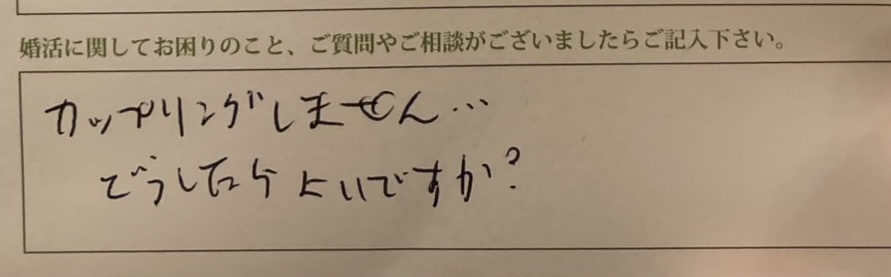 婚活に関してお困りのこと、ご質問やご相談がございましたらご記入下さい。
カップリングしません…
どうしたらよいですか?